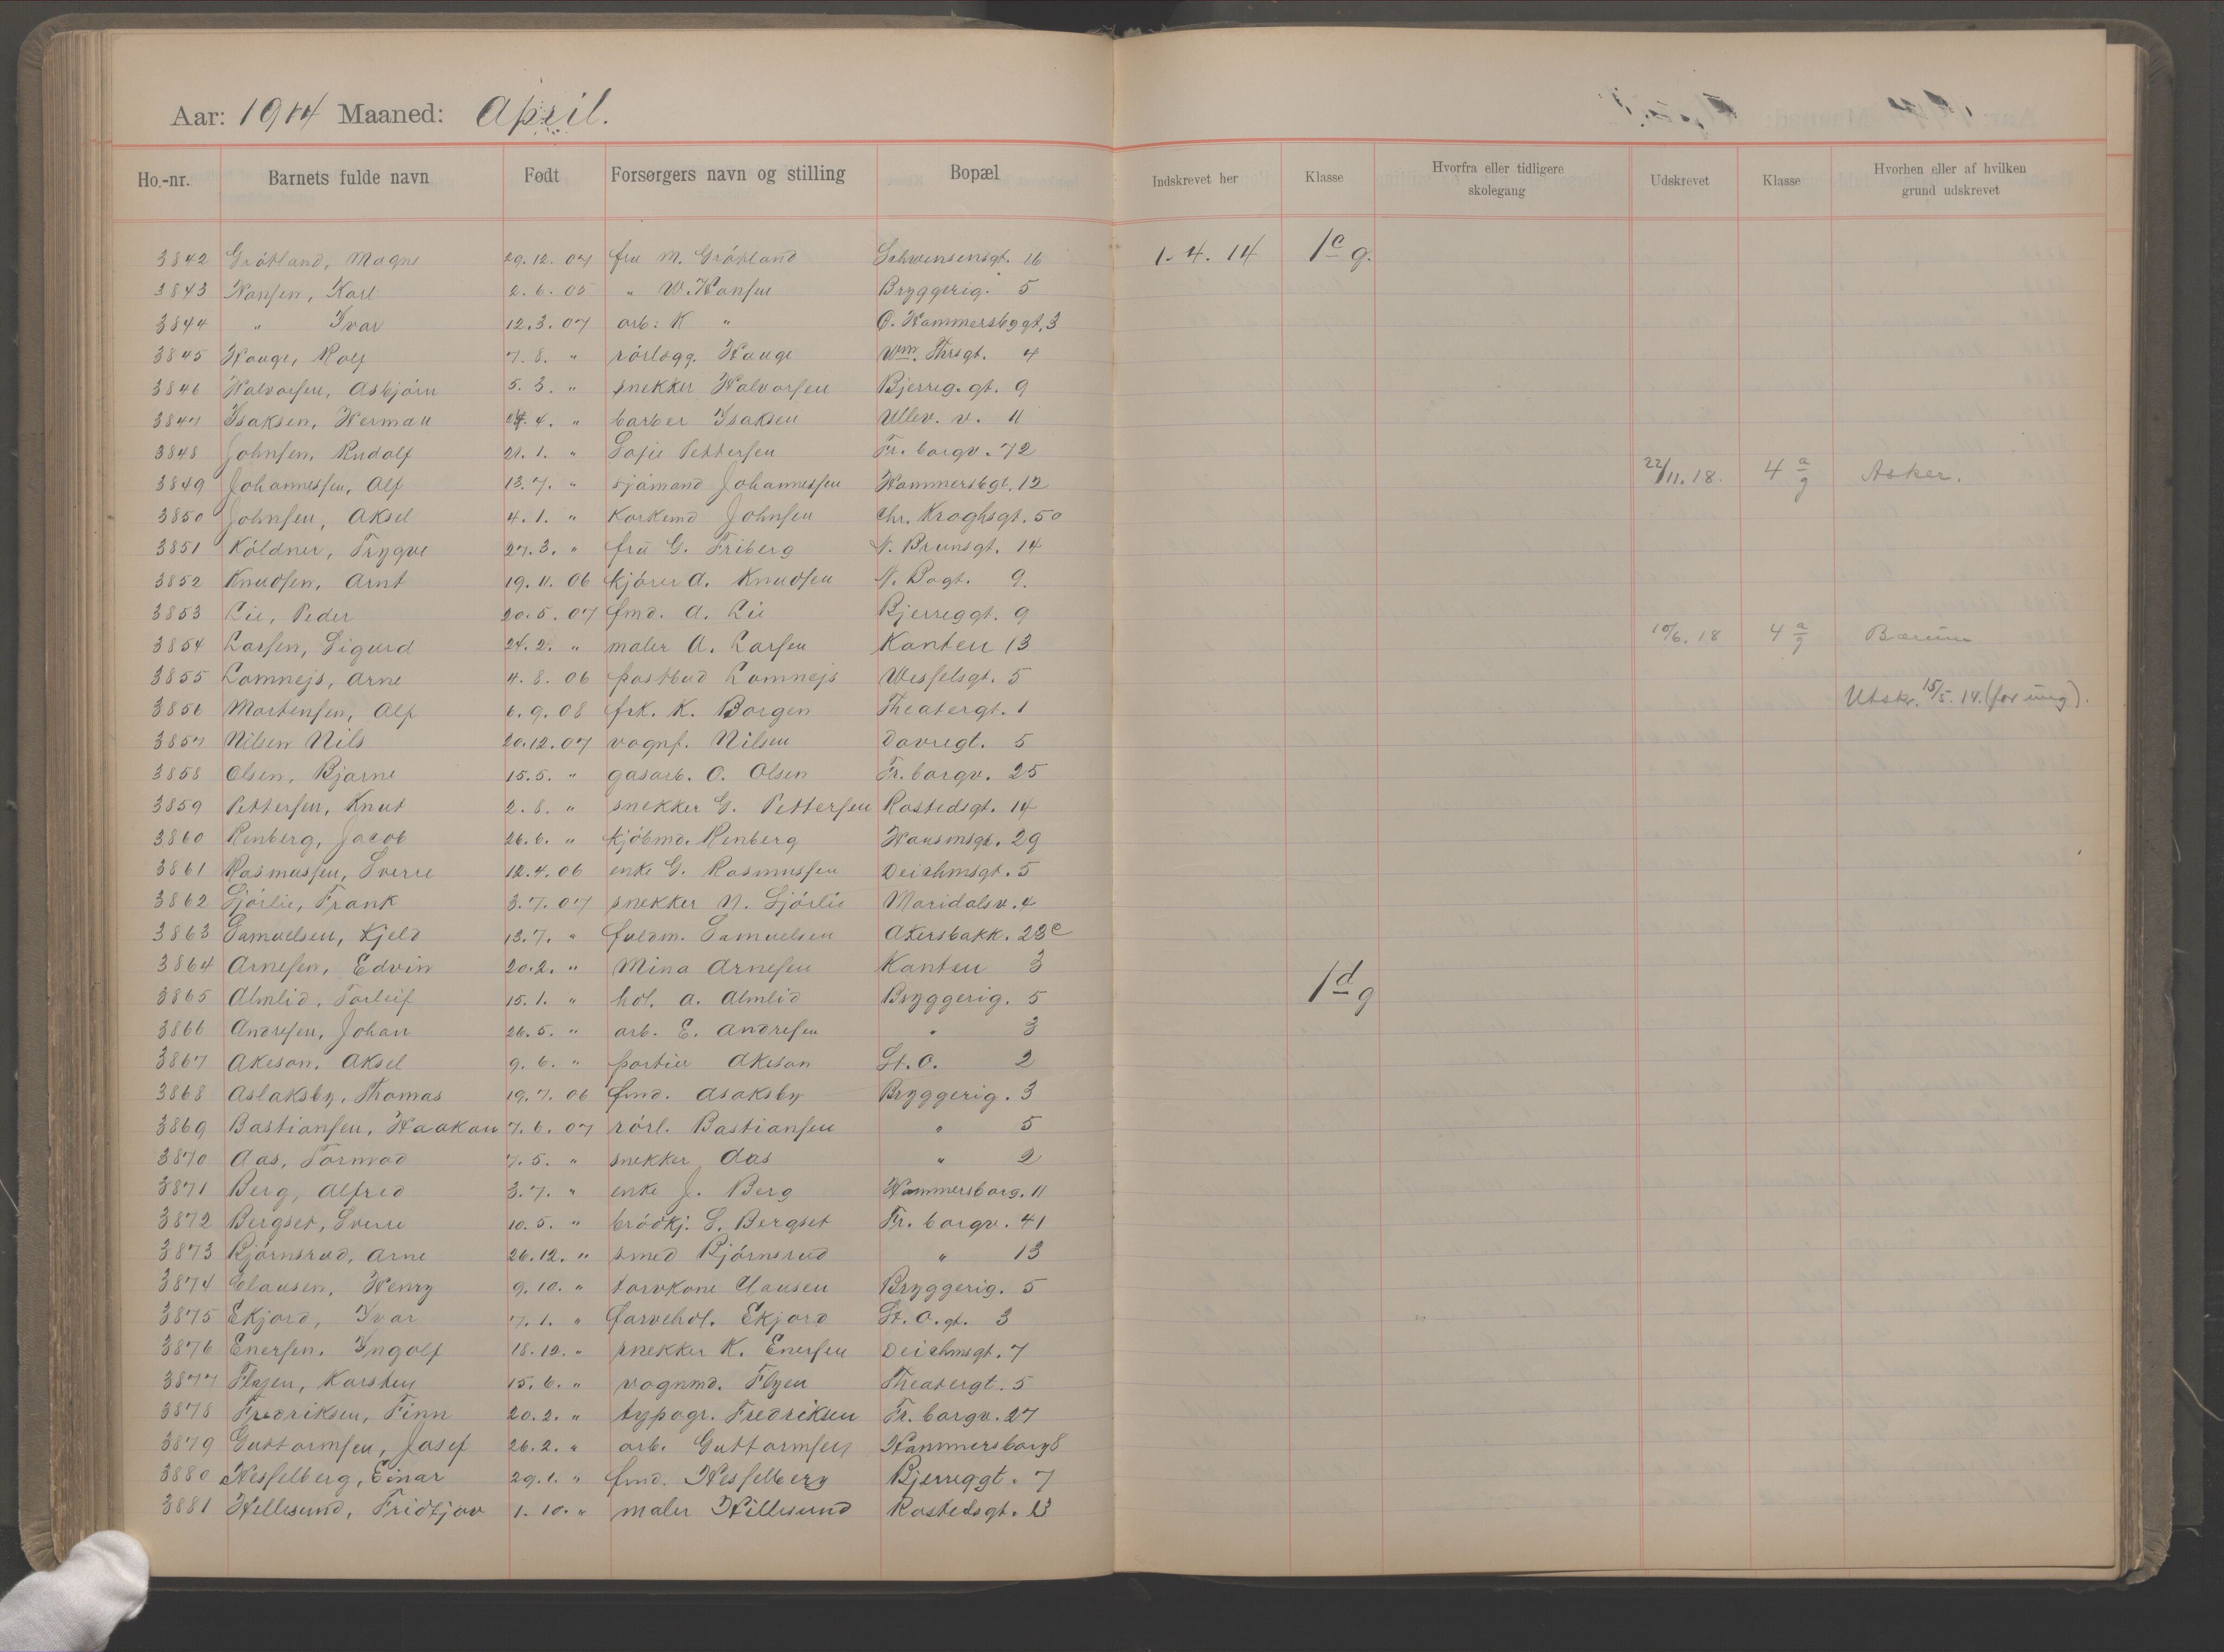 Aar: 1914 Maaned: April.
Ho.-nr. Barnets fulde navn Født Forsørgers navn og stilling Bopæl Indskrevet her Klasse Hvorfra eller tidligere skolegang Udskrevet Klasse Hvorhen eller af hvilken grund udskrevet
3842 Gråtland, Magne 29.12.07 fru M. Gråtland Schwensensgt. 16 1.4.14 1c g.
3843 Hansen, Karl 2.6.05 " W. Hansen Bryggerig. 5
3844 " Ivar 12.3.07 arb: K " O. Hammersbggt, 3
3845 Hauge, Rolf 7.8. " rörlægg. Hauge Wm. Thrsgt. 4
3846 Halvorsen, Asbjörn 5.3. " snekker Halvorsen Bjerreg. gt. 9
3847 Isaksen, Herman 4. " barber Isaksen Ullev. v. 11
3848 Johnsen, Rudolf 21.1. " Sofie Pettersen Fr. borgv. 72
3849 Johannessen, Alf 13.7. " sjömand Johannessen Hammersbgt. 12 22/11.18. 4 a/g Asker.
3850 Johnsen, Aksel 4.1. " Korkemd Johnsen Chr. Kroghsgt. 50
3851 Köldner, Trygve 27.3. " fru G. Friberg N. Brunsgt. 14
3852 Knudsen, Arnt 19.11.06 kjörer A. Knudsen N. Bogt. 9.
3853 Lie, Peder 20.5.07 fmd. A. Lie Bjerreggt. 9
3854 Larsen, Sigurd 24.2. " maler A. Larsen Kanten 13 10/6.18 4 a/g Bærum
3855 Lomnejs, Arne 4.8.06 postbud Lomnejs Wesselsgt. 5
3856 Mortensen, Alf 6.9.08 frk. K. Borgen Theatergt. 1 Utskr. 15/5.14. (for ung).
3857 Nilsen Nils 20.12.07 vognf. Nilsen Dovregt. 5
3858 Olsen, Bjarne 15.5. " gasarb. O. Olsen Fr. borgv. 25
3859 Pettersen, Knut 2.8. " snekker G. Pettersen Rostedsgt. 14
3860 Renberg, Jacob 26.6. " kjöbmd. Renberg Hausmsgt. 29
3861 Rasmussen, Sverre 12.4.06 enke G. Rasmussen Deichmsgt. 5
3862 Sjörlie, Frank 3.7.07 snekker N. Sjörlie Maridalsv. 4
3863 Samuelsen, Kjeld 13.7. " fuldm. Samuelsen Akersbakk. 23c
3864 Arnesen, Edvin 20.2. " Mina Arnesen Kanten 3 1d g
3865 Almlid, Torleif 15.1. " hdl. A. Almlid Bryggerig. 5
3866 Andresen, Johan 26.5. " arb. E. Andresen " 3
3867 Akeson, Aksel 9.6. " portier Akeson St. O. 2
3868 Aslaksby, Thomas 19.7.06 fmd. Asaksby Bryggerig. 3
3869 Bastiansen, Haakon 7.6.07 rörl. Bastiansen " 5
3870 Aas, Tormod 7.5. " snekker Aas " 2
3871 Berg, Alfred 3.7. " enke J. Berg Hammersborg. 11
3872 Bergset, Sverre 10.5. " brödkj. S. Bergset Fr. borgv. 41
3873 Björnsrud, Arne 26.12. " smed Björnsrud " 13
3874 Clausen, Henry 9.10. " torvkone Clausen Bryggerig. 5
3875 Ekjord, Ivar 7.1. " farvehdl. Ekjord St. O. gt. 3
3876 Enersen, Ingolf 18.12. " snekker K. Enersen Deichmsgt. 7
3877 Flyen, Karsten 15.6. " vognmd. Flyen Theatergt. 5
3878 Fredriksen, Finn 20.2. " typogr. Fredriksen Fr. borgv. 27
3879 Guttormsen, Josef 26.2. " arb. Guttormsen Hammersborg 8
3880 Hesselberg, Einar 29.1. " fmd. Hesselberg Bjerreggt. 7
3881 Hellesund, Fridtjov 1.10. " maler Hillesund Rostedsgt. 13